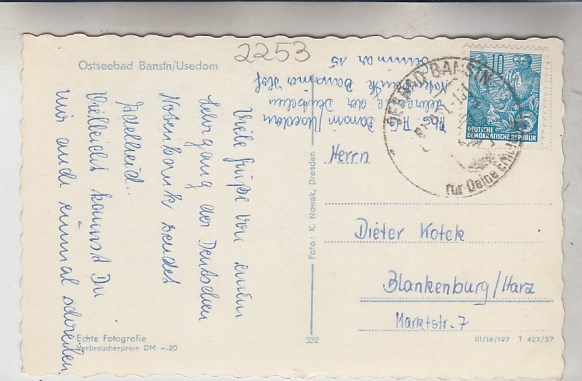 2253
Ostseebad Bansin/Usedom
Viele Grüße von einem
Lehrgang der Deutschen
Notenbank sendet
Adelheid.
Vielleicht kannst Du
mir auch einmal schreiben
Bansin/Usedom
der Deutschen
Zimmer 15
Foto: K. Nowak, Dresden
332
Herrn
Dieter Kotek
Blankenburg/Harz
Marktstr. 7
SEEBAD BANSIN
für Deine
10
DEUTSCHE
DEMOKRATISCHE REPUBLIK
Echte Fotografie
Verbraucherpreis DM -.20
III/18/197 T 427/57